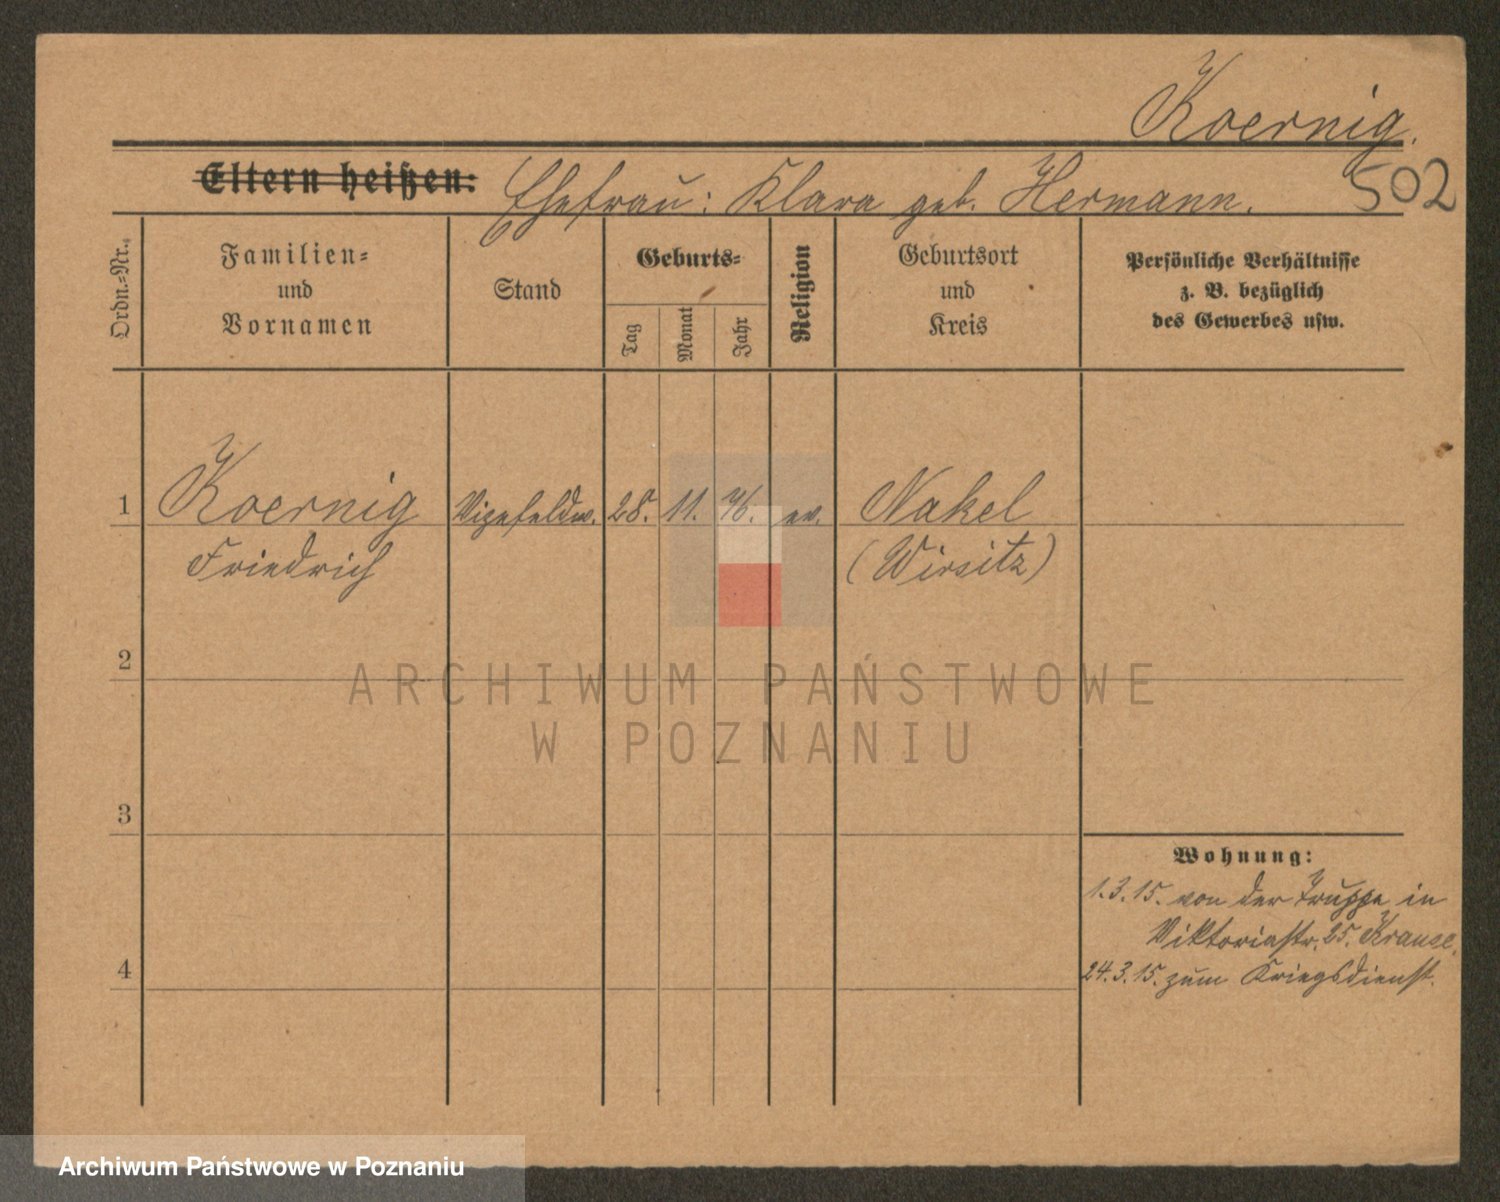 Koernig.
502
Eltern heißen: Ehefrau: Klara geb. Hermann.
Ordn.-Nr.
Familien-
und
Vornamen
Stand
Geburts-
Tag
Monat
Jahr
Religion
Geburtsort
und
Kreis
Persönliche Verhältnisse
z. B. bezüglich
des Gewerbes usw.
1 Koernig Vizefeldw. 28. 11. 76. ev. Nakel
Friedrich (Wirsitz)
2
ARCHIWUM PAŃSTWOWE
W POZNANIU
3
Wohnung:
1.3.15. von der Truppe in
Viktoriastr. 25. Krause.
24.3.15. zum Kriegsdienst.
4
Archiwum Państwowe w Poznaniu